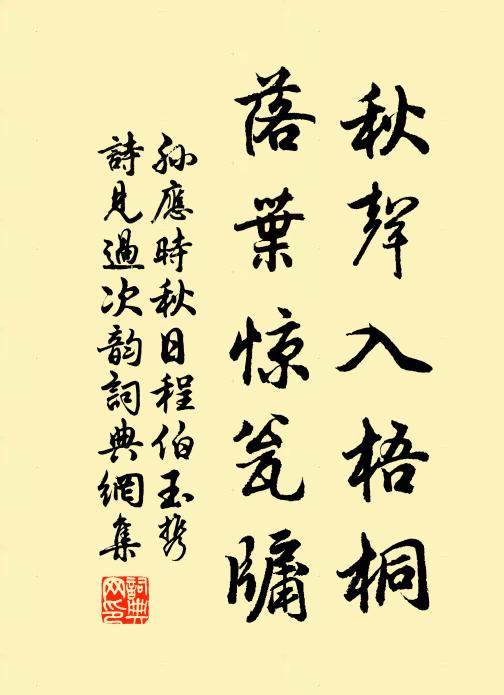 秋聲入梧桐
落葉惊瓮牖
孙應時秋日程伯玉携
詩見過次韵詞典網集
詞典網印